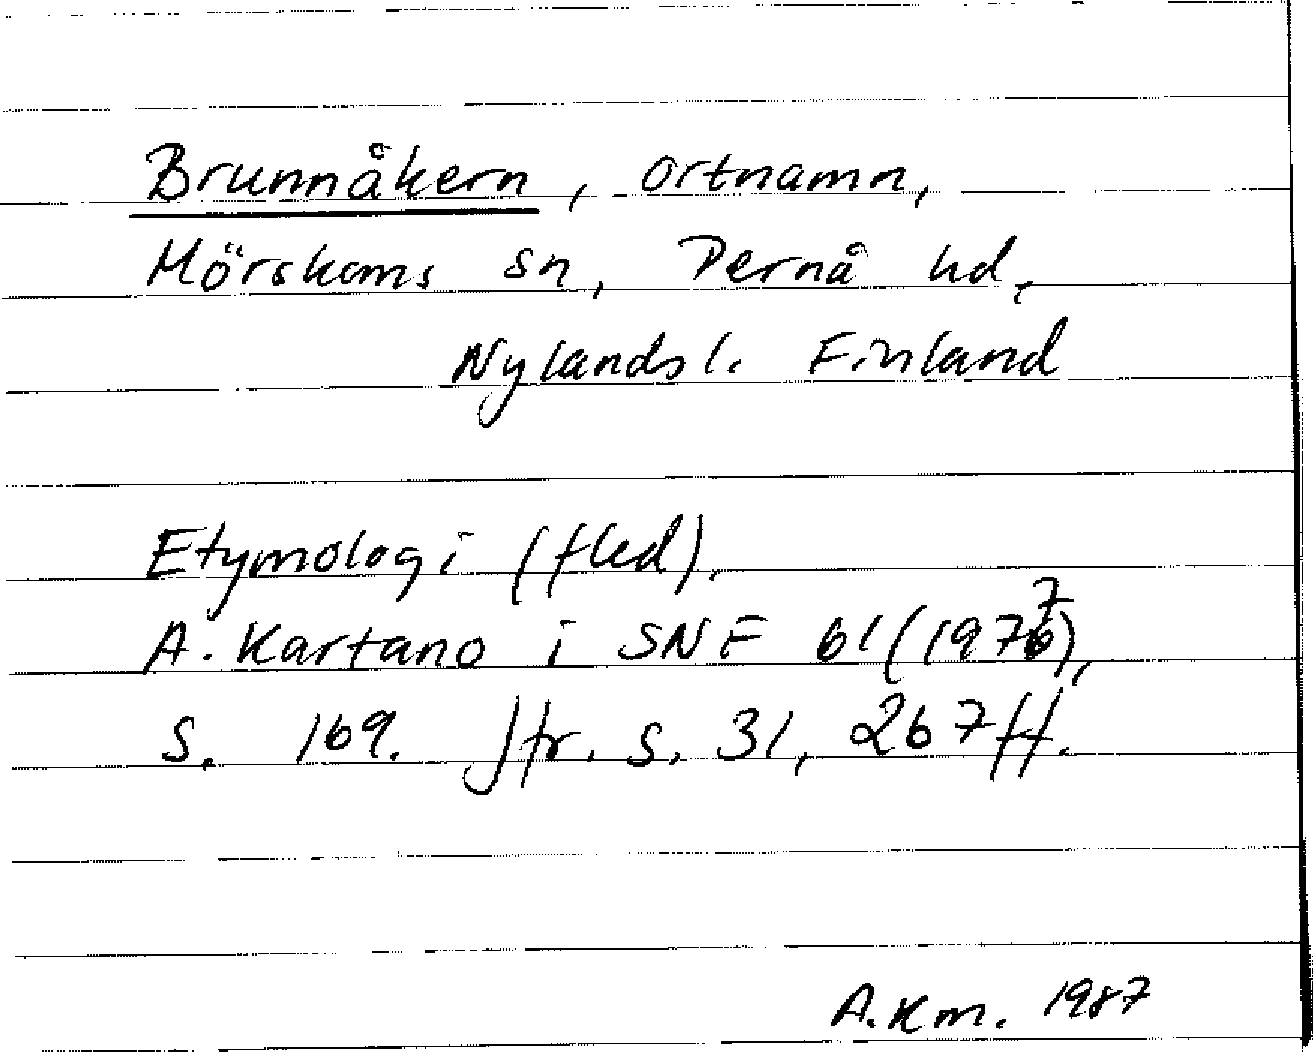 Brunnåkern, ortnamn,
Mörskoms sn, Pernå hd,
Nylands l. Finland
Etymologi (fled),
A. Kartano i SNF 61 (1977),
s. 169. Jfr. s. 31, 267 ff.
A.Km. 1987